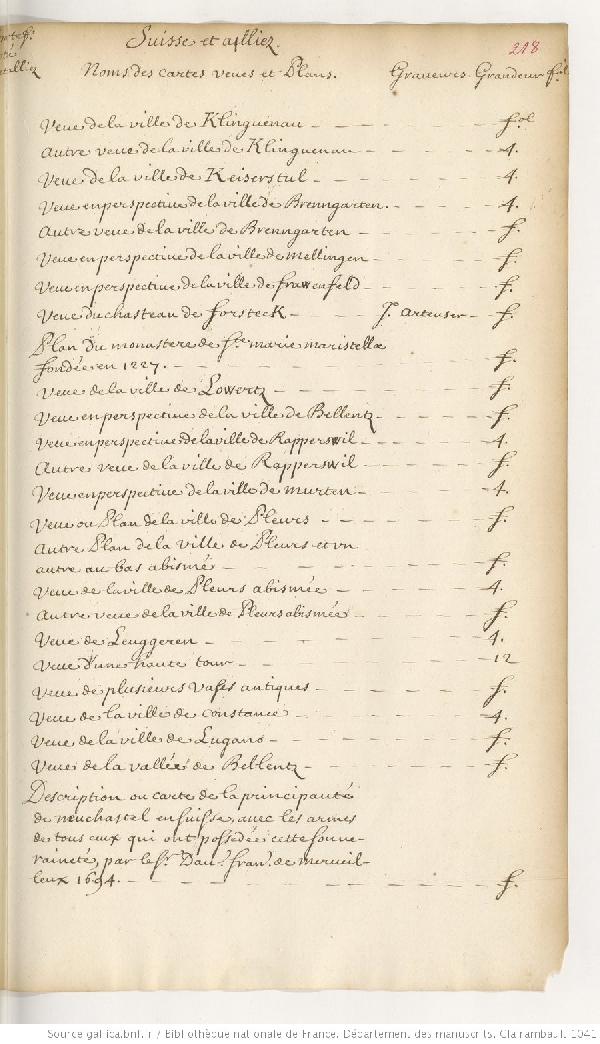 Suisse et alliez.
218
Noms des cartes veues et Plans. Graveurs Grandeur
Veue de la ville de Klinguenau — fol
Autre veue de la ville de Klinguenau — 4.
Veue de la ville de Keiserstul — 4.
Veue en perspective de la ville de Bremgarten. — 4.
Autre veue de la ville de Bremgarten — f.
Veue en perspective de la ville de mellingen — f.
Veue en perspective de la ville de frawenfeld — f.
Veue du chasteau de forsteck — J. Artenser — f.
Plan du monastere de Ste marie maristellæ
fondée en 1227. — f.
Veue de la ville de Lowertz — f.
Veue en perspective de la ville de Bellentz — f.
Veue en perspective de la ville de Rapperswil — 4.
Autre veue de la ville de Rapperswil — f.
Veue en perspective de la ville de murten — 4.
Veue ou Plan de la ville de Pleurs — f.
Autre Plan de la ville de Pleurs et vn
autre au bas abismé — f.
Veue de la ville de Pleurs abismée — 4.
Autre veue de la ville de Pleurs abismée — f.
Veue de Leuggeren — 4.
Veue d'une haute tour — 12
Veue de plusieurs vases antiques — f.
Veue de la ville de constance — 4.
Veue de la ville de Lugano — f.
Veue de la vallée de Bellentz — f.
Description ou carte de la principauté
de neuchastel en suisse, avec les armes
de tous ceux qui ont possédée cette souve-
raineté, par le Sr. Dan. fran. de merveil-
leux 1694. — f.
Source gallica.bnf.fr / Bibliothèque nationale de France. Département des manuscrits. Clairambault 1041